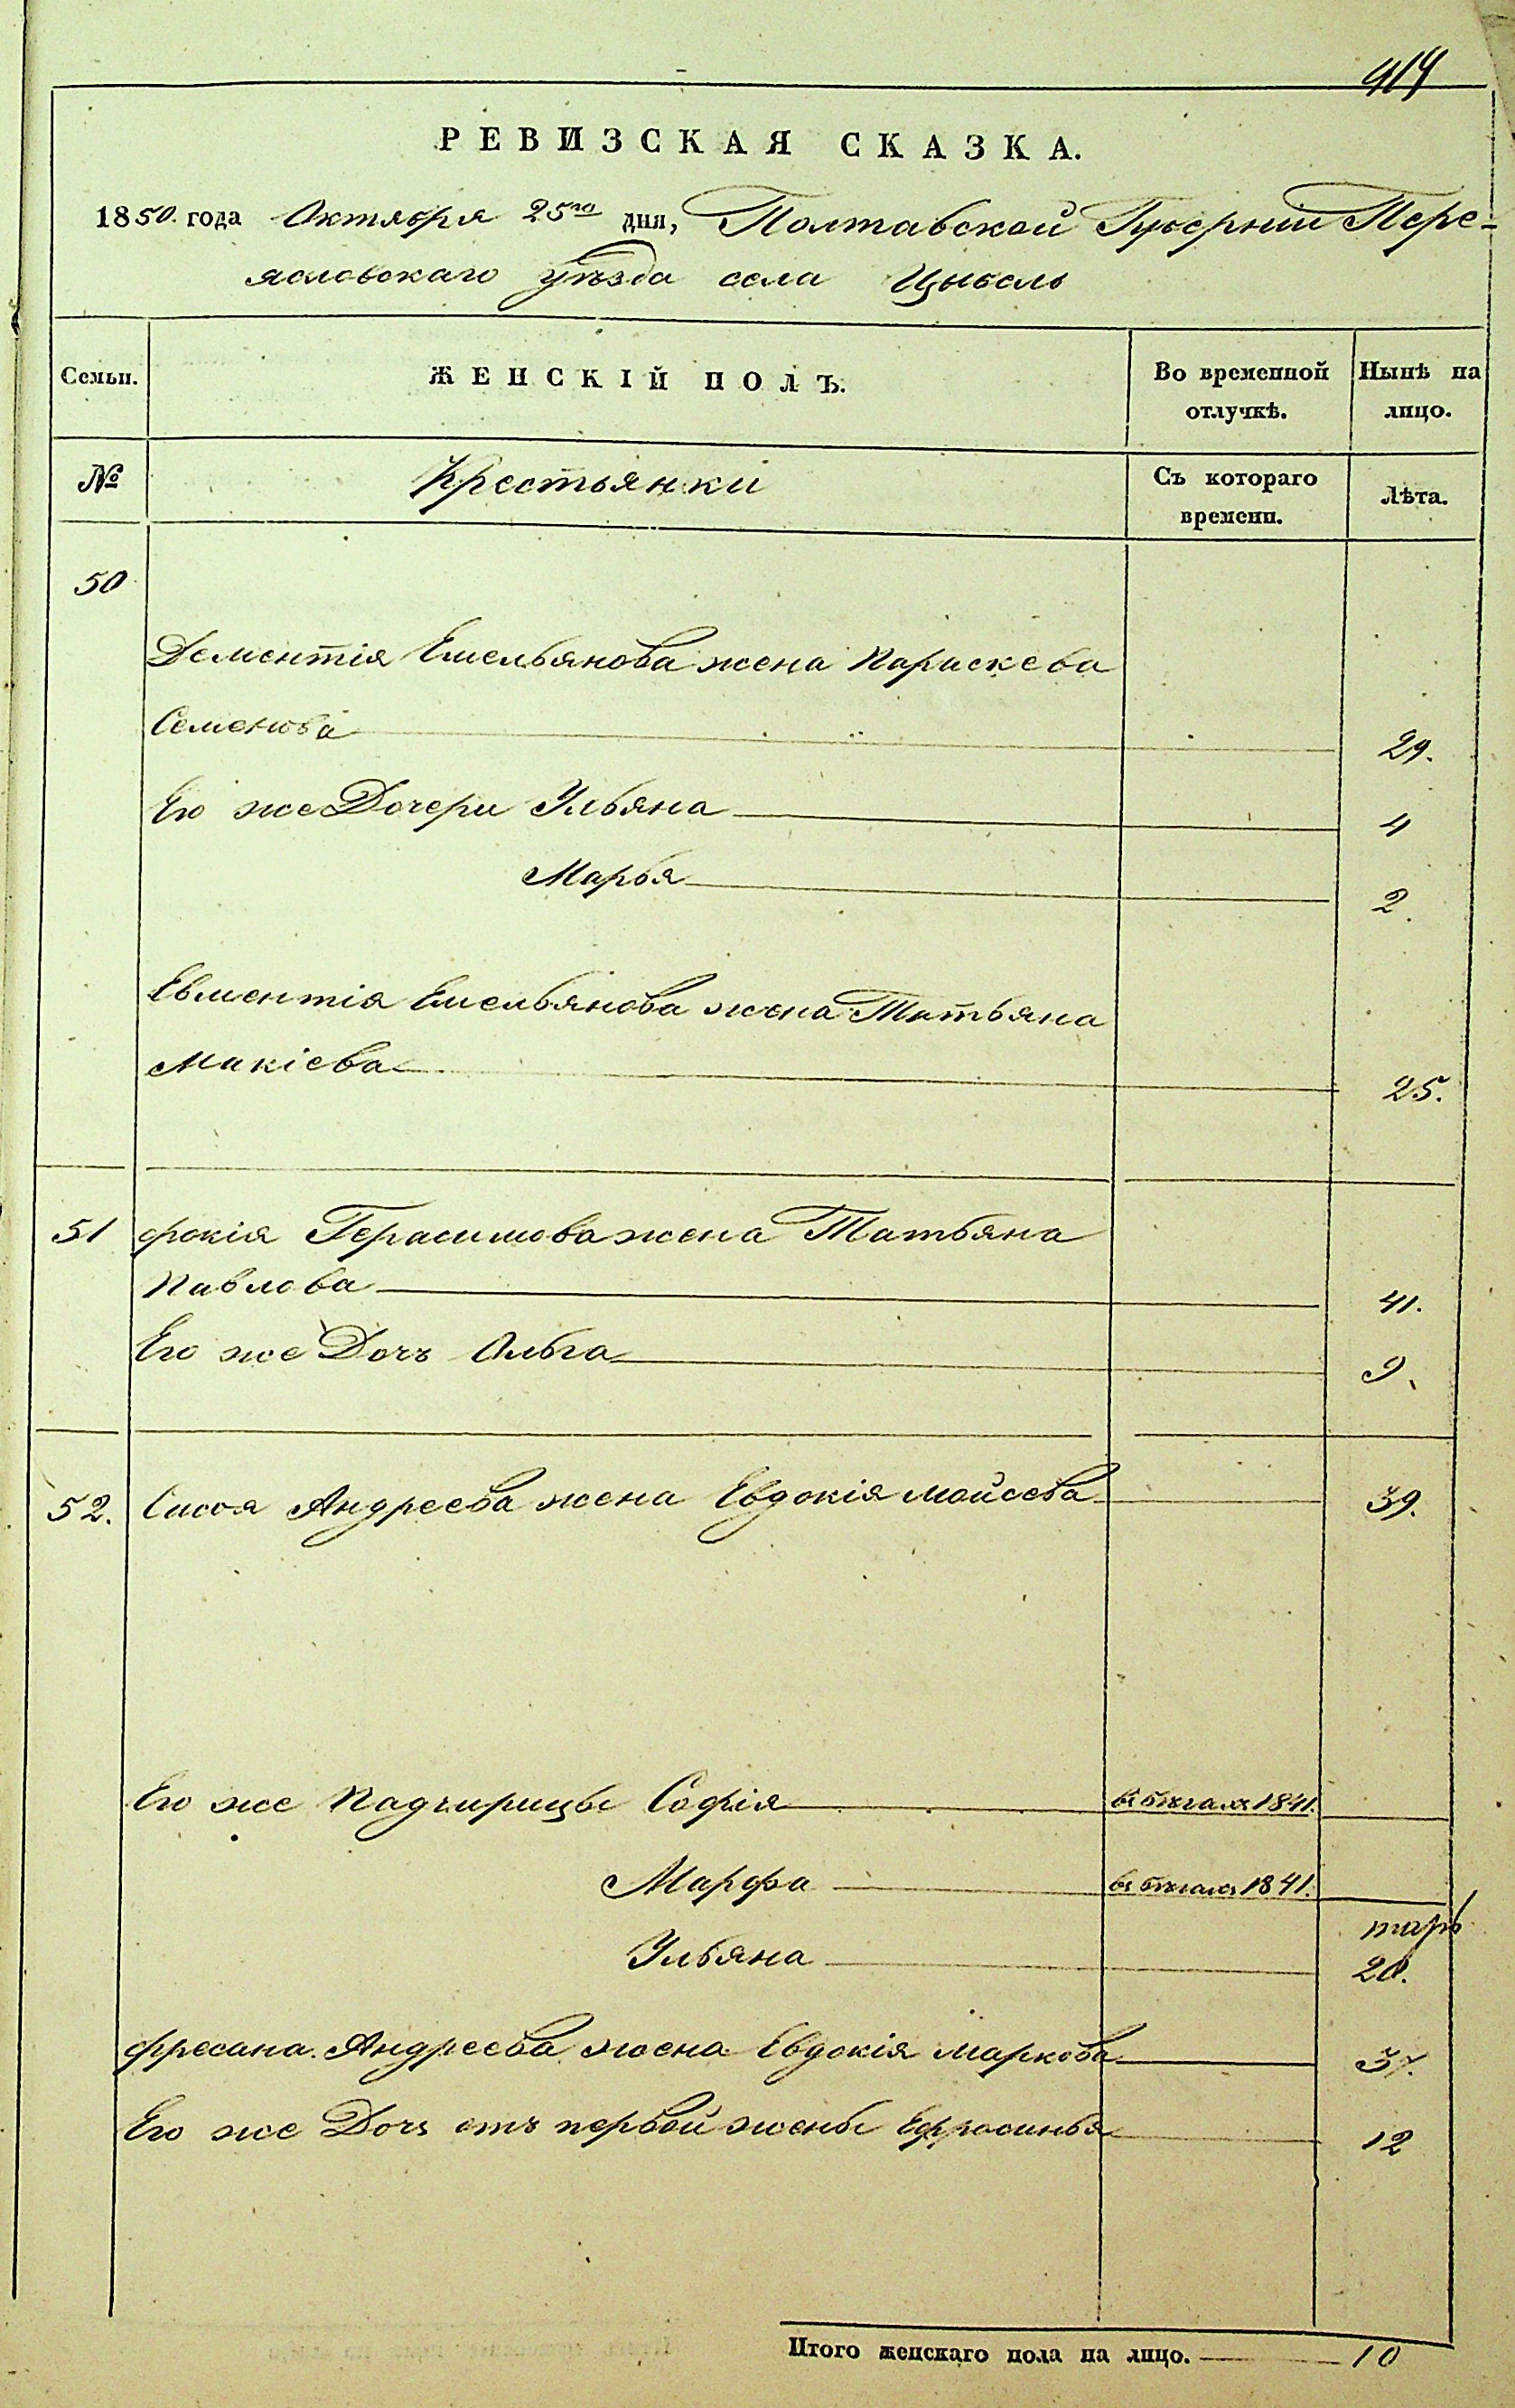 414
РЕВИЗСКАЯ СКАЗКА.
1850. года Октября 25го дня, Полтавской Губерніи Пере-
яславскаго уѣзда села Цыбель
Семьи. ЖЕНСКІЙ ПОЛЪ. Во временной отлучкѣ. Нынѣ на лицо.
№ Крестьянки Съ котораго времени. Лѣта.
50
Дементія Емельянова жена Параскева
Семенова 29.
Его же Дочери Ульяна 4
Марья 2.
Евментія Емельянова жена Татьяна
Макіева 25.
51 Фокія Герасимова жена Татьяна
Павлова 41.
Его же Дочь Ольга 9.
52. Сисоя Андреева жена Евдокія Мойсеева 39.
Его же Падчирицы Софія въ бѣгахъ 1841.
Марфа въ бѣгахъ 1841.
Ульяна 20.
Фресана Андреева жена Евдокія Маркова 37.
Его же Дочь отъ первой жены Ефросинья 12
Итого женскаго пола на лицо. 10